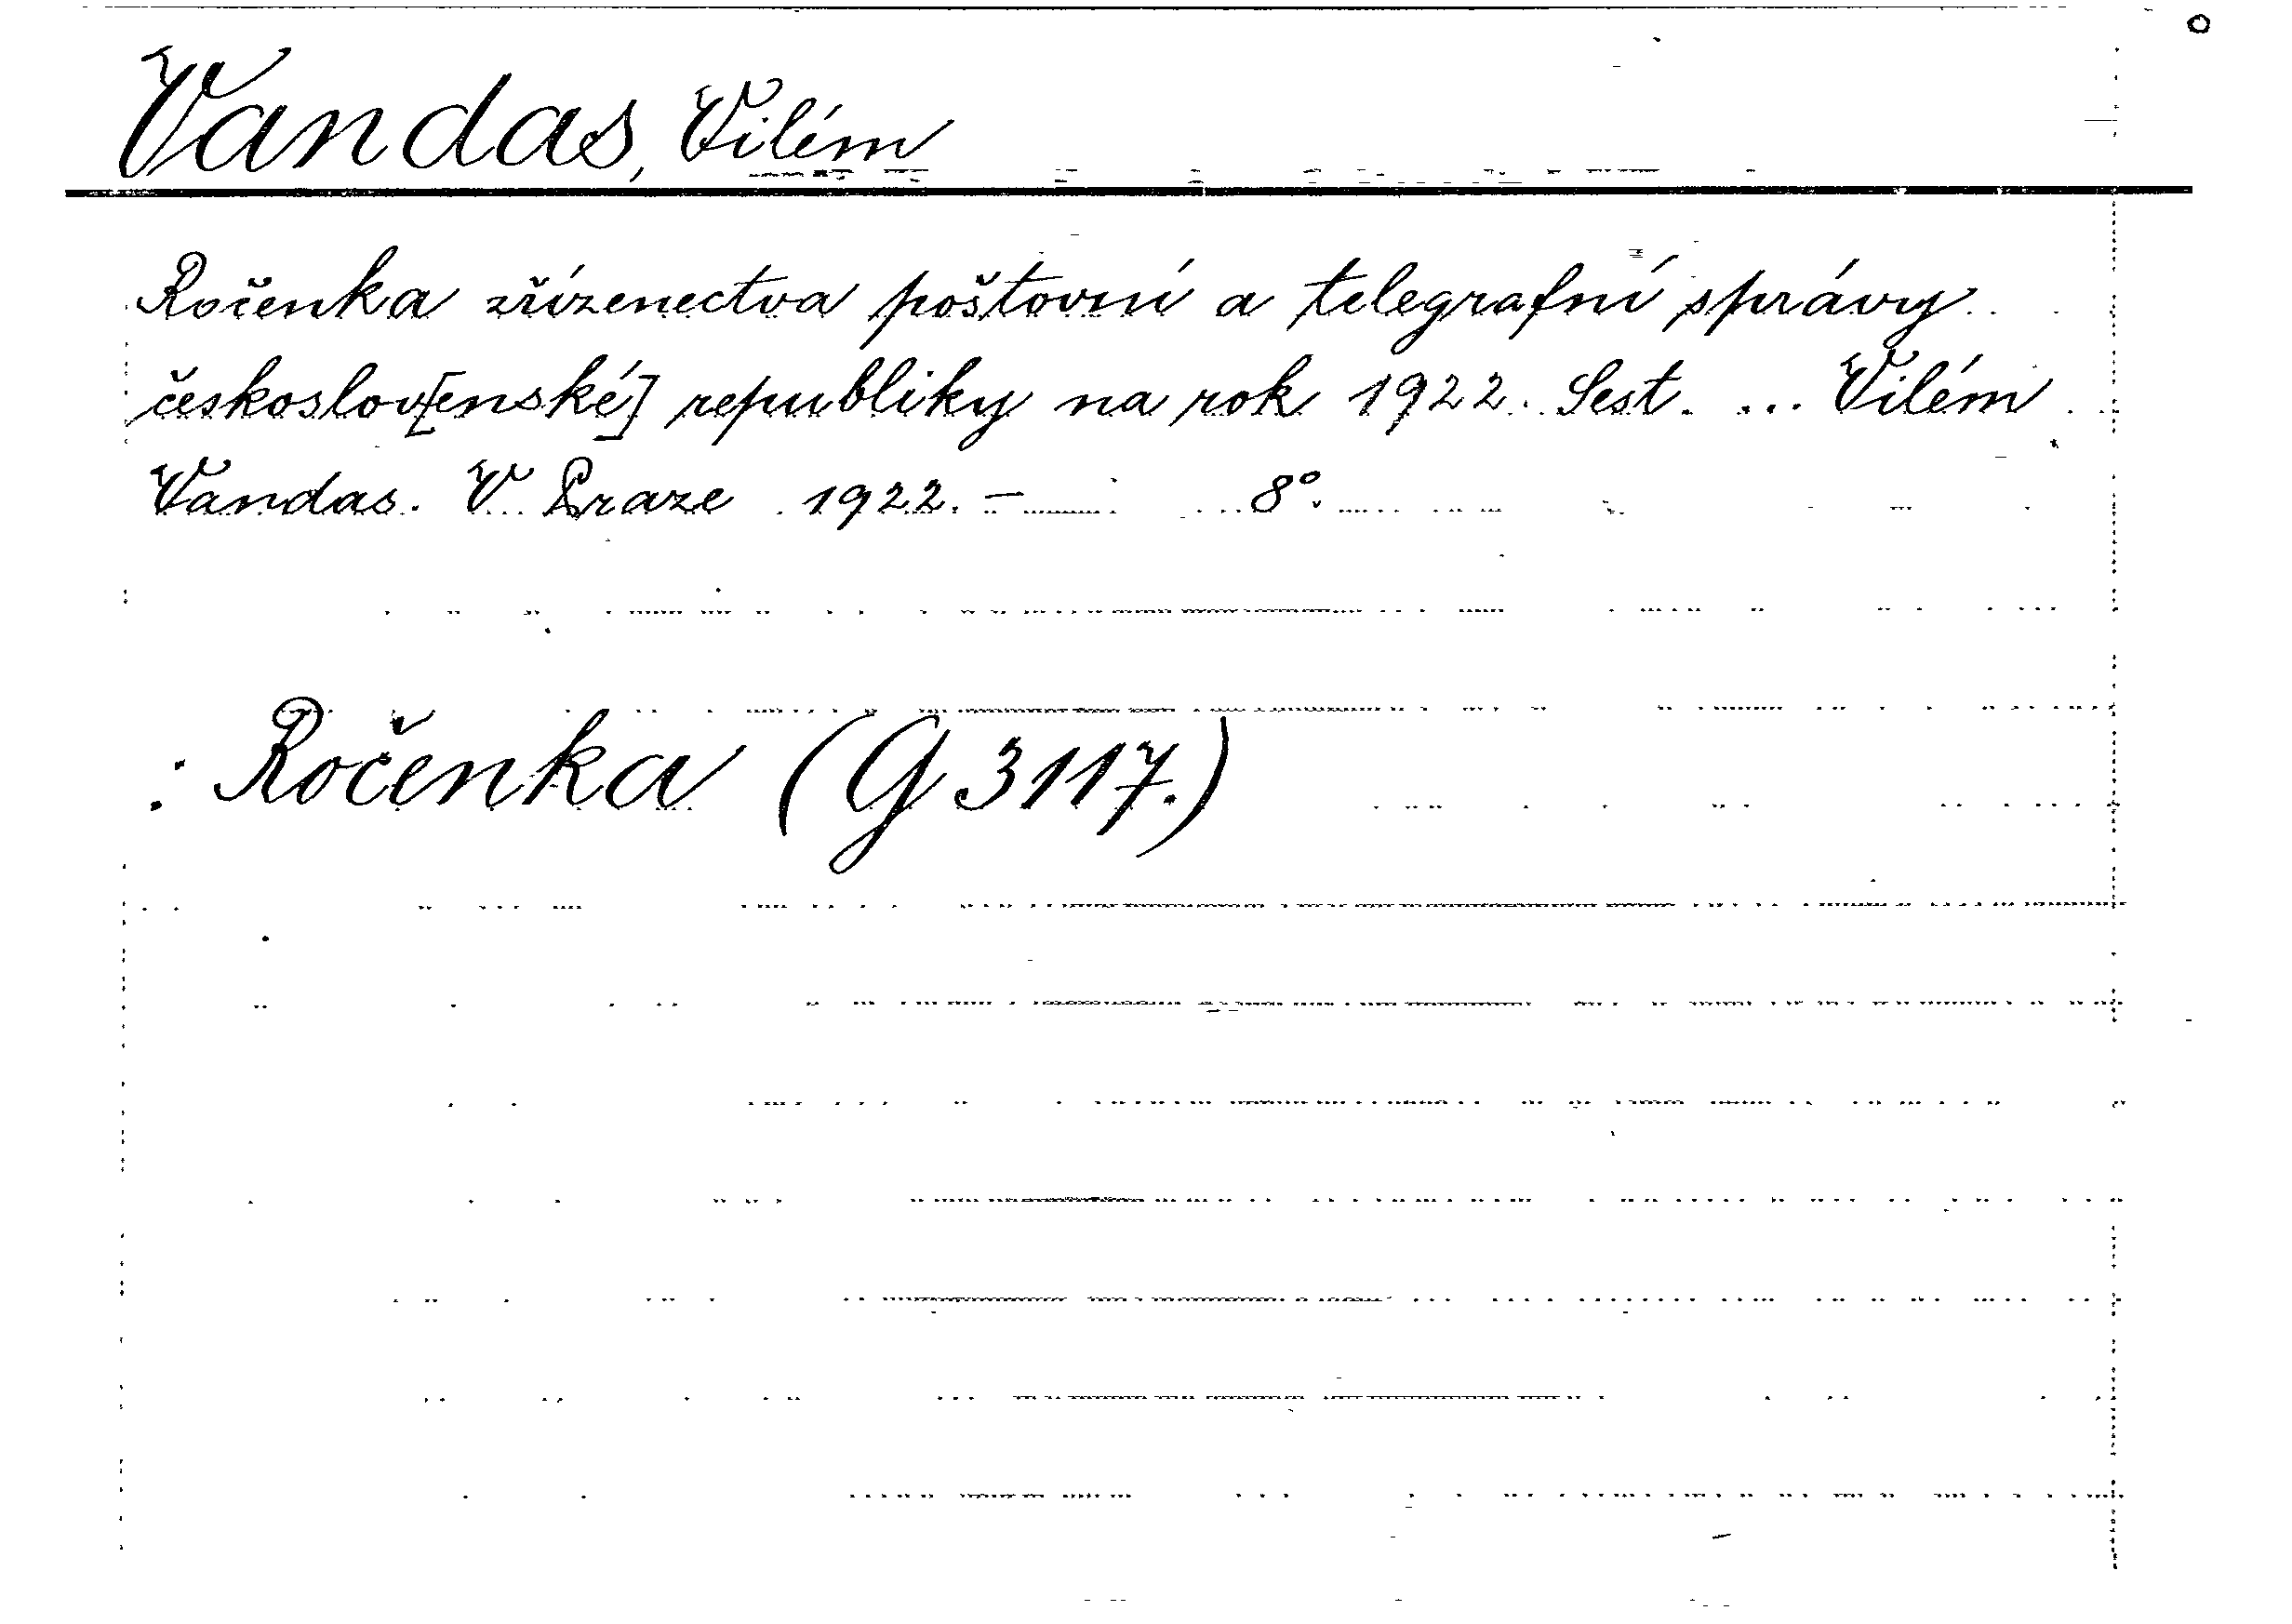 Vandas, Vilém
Ročenka zřízenectva poštovní a telegrafní správy
českoslov[enské] republiky na rok 1922. Sest. ... Vilém
Vandas. V Praze 1922. – 8°.
: Ročenka (G 3117.)